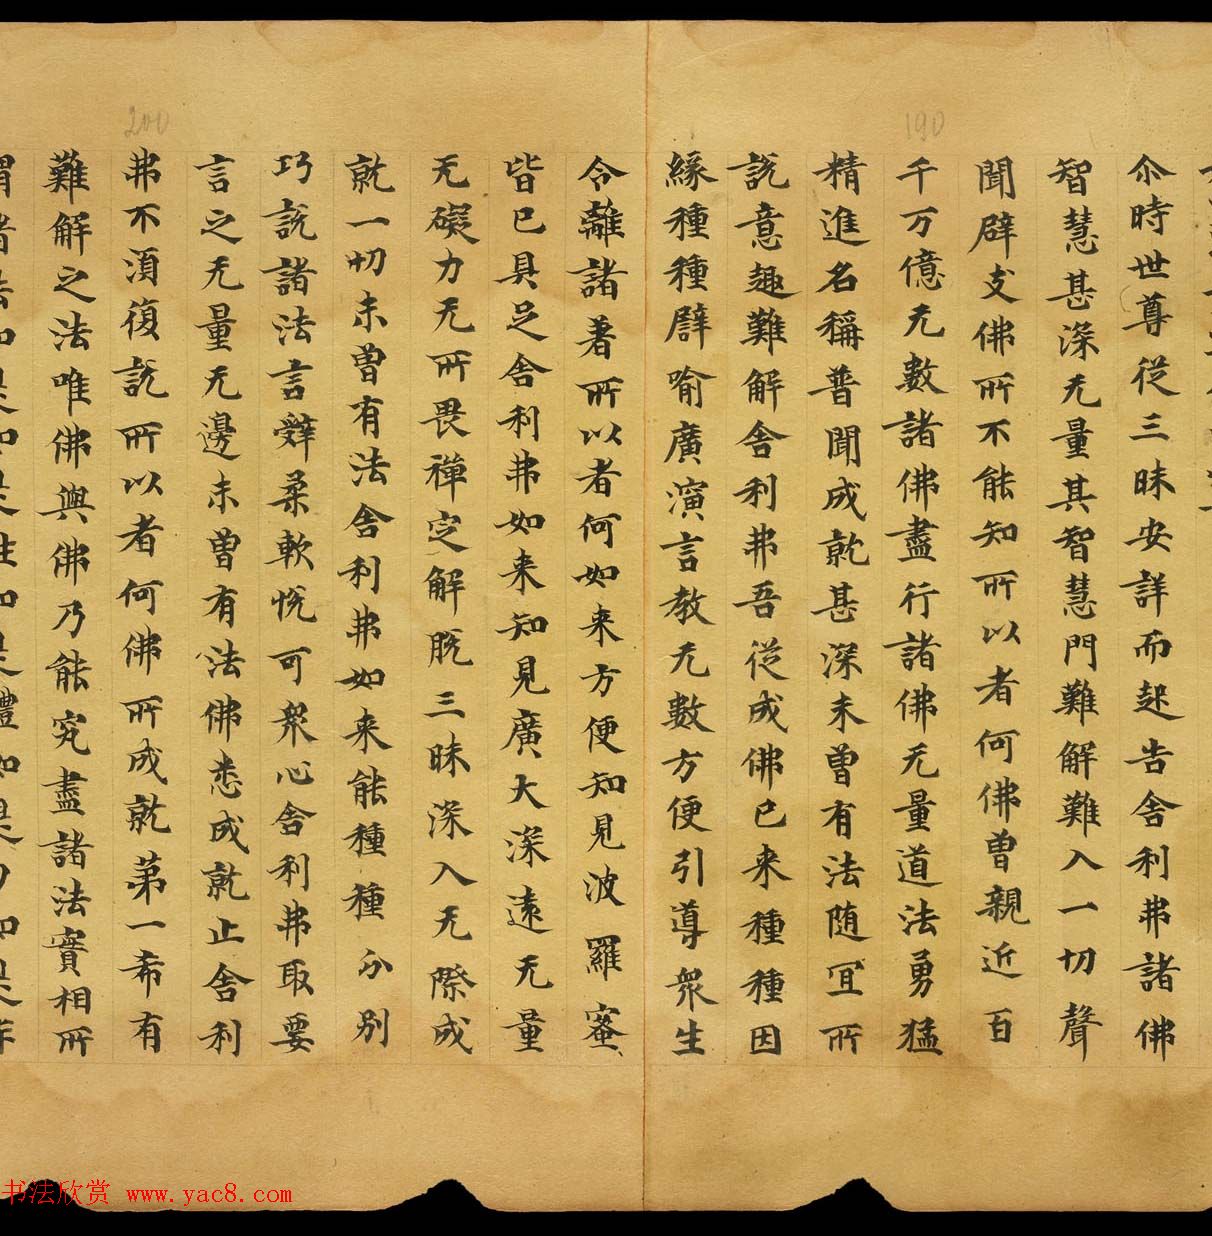 190
尒時世尊從三昧安詳而起告舍利弗諸佛
智慧甚深无量其智慧門難解難入一切聲
聞辟支佛所不能知所以者何佛曽親近百
千万億无數諸佛盡行諸佛无量道法勇猛
精進名稱普聞成就甚深未曽有法随冝所
説意趣難解舍利弗吾從成佛已来種種因
緣種種辟喻廣演言教无數方便引導衆生
令離諸著所以者何如来方便知見波羅蜜
皆已具足舍利弗如来知見廣大深遠无量
无礙力无所畏禅定解脱三昧深入无際成
就一切未曽有法舍利弗如来能種種分别
巧説諸法言辤柔軟悦可衆心舍利弗取要
言之无量无邊未曽有法佛悉成就止舍利
200
弗不湏復説所以者何佛所成就第一希有
難解之法唯佛與佛乃能究盡諸法實相所
书法欣赏 www.yac8.com